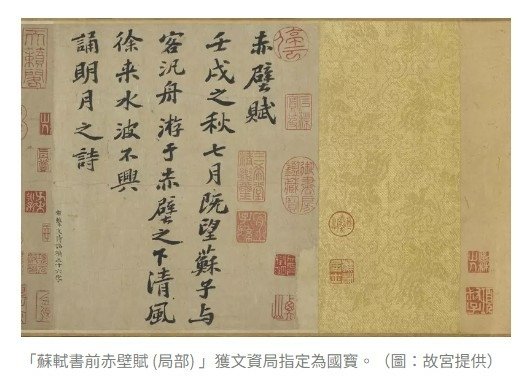 赤壁賦
壬戌之秋七月既望蘇子与
客汎舟游于赤壁之下清風
徐来水波不興
誦明月之詩
「蘇軾書前赤壁賦 (局部) 」獲文資局指定為國寶。（圖：故宮提供）